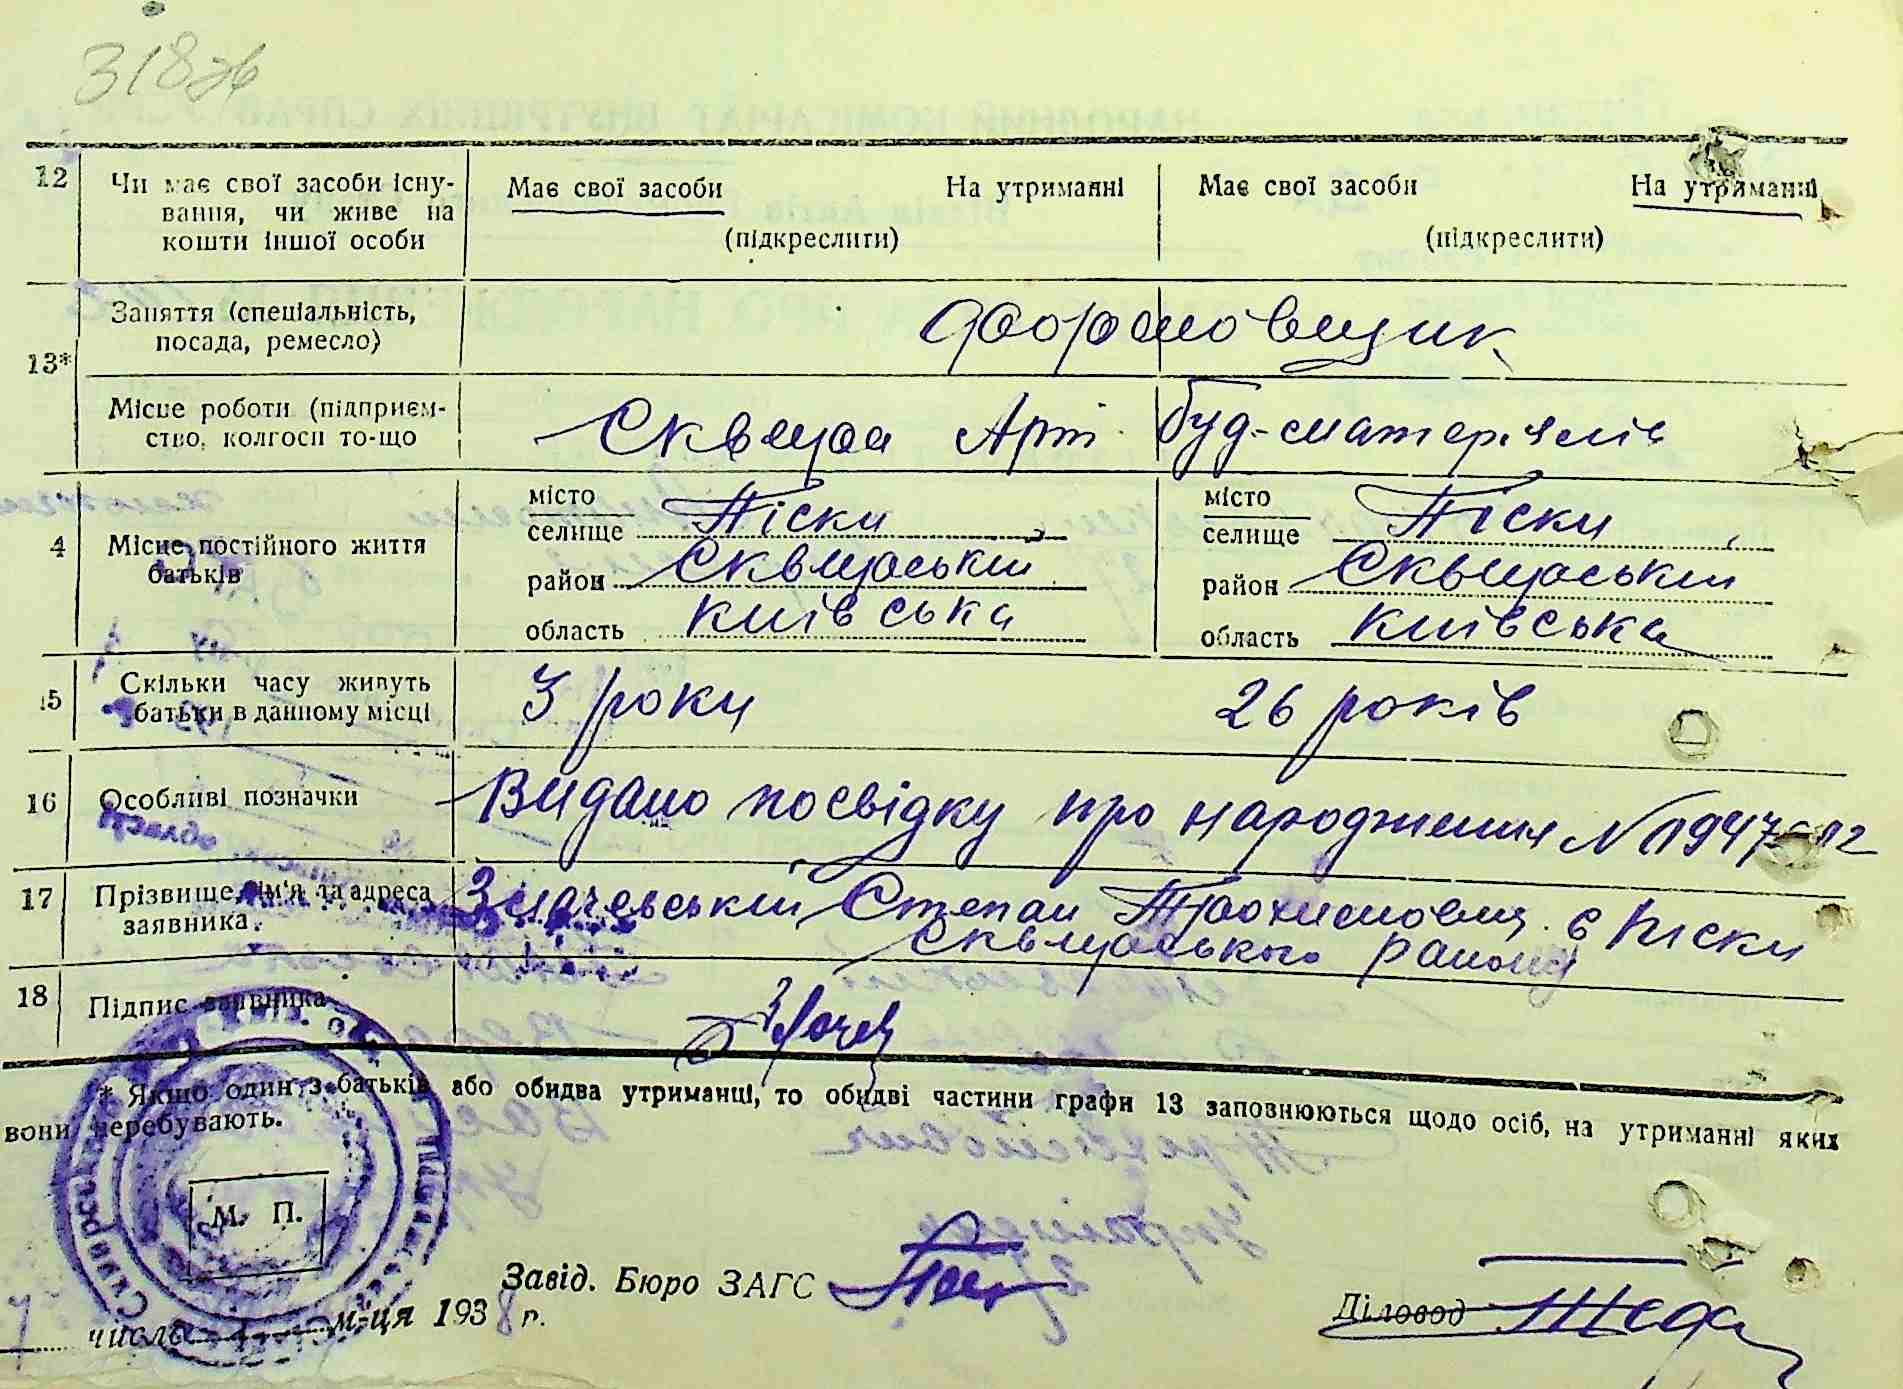 318
12 Чи має свої засоби існу-
вання, чи живе на
кошти іншої особи
Має свої засоби На утриманні
(підкреслити)
Має свої засоби На утриманні
(підкреслити)
13*
Заняття (спеціальність,
посада, ремесло)
формовщик
Місце роботи (підприєм-
ство, колгосп то-що
Сквира Арт. буд-матеріялів
4 Місце постійного життя
батьків
місто
селище Піски,
район Сквирський
область Київська
місто
селище Піски,
район Сквирський
область Київська
15 Скільки часу живуть
батьки в данному місці
3 роки
26 років
16 Особливі позначки
Видано посвідку про народження №
17 Прізвище, ім'я та адреса
заявника.
Степан Трохимович с Піски
Сквирського району
18 Підпис заявника
* Якщо один з батьків або обидва утриманці, то обидві частини графи 13 заповнюються щодо осіб, на утриманні яких
вони перебувають.
М. П.
Завід. Бюро ЗАГС
числа м-ця 1938 р.
Діловод